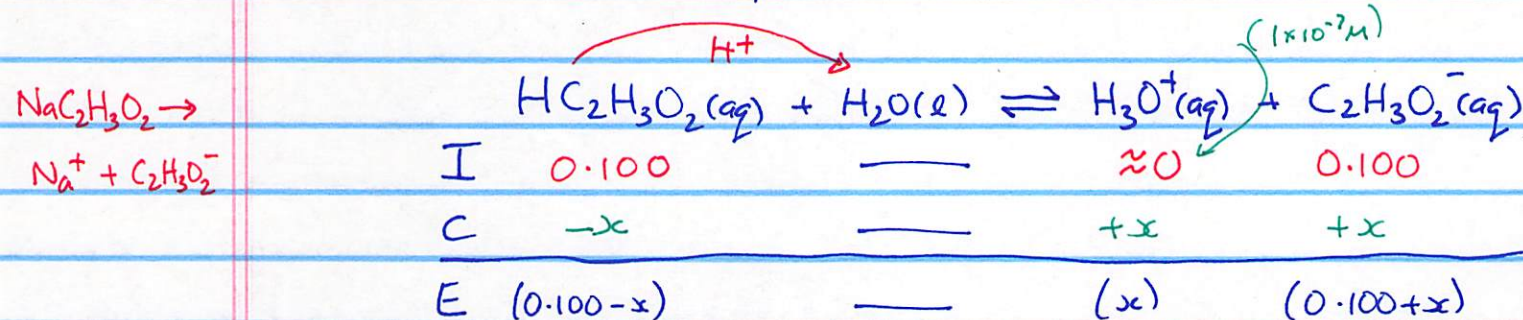 H+
(1×10⁻⁷M)
NaC₂H₃O₂ →
Na⁺ + C₂H₃O₂⁻
HC₂H₃O₂(aq) + H₂O(l) ⇌ H₃O⁺(aq) + C₂H₃O₂⁻(aq)
I 0.100 — ≈0 0.100
C -x — +x +x
E (0.100-x) — (x) (0.100+x)